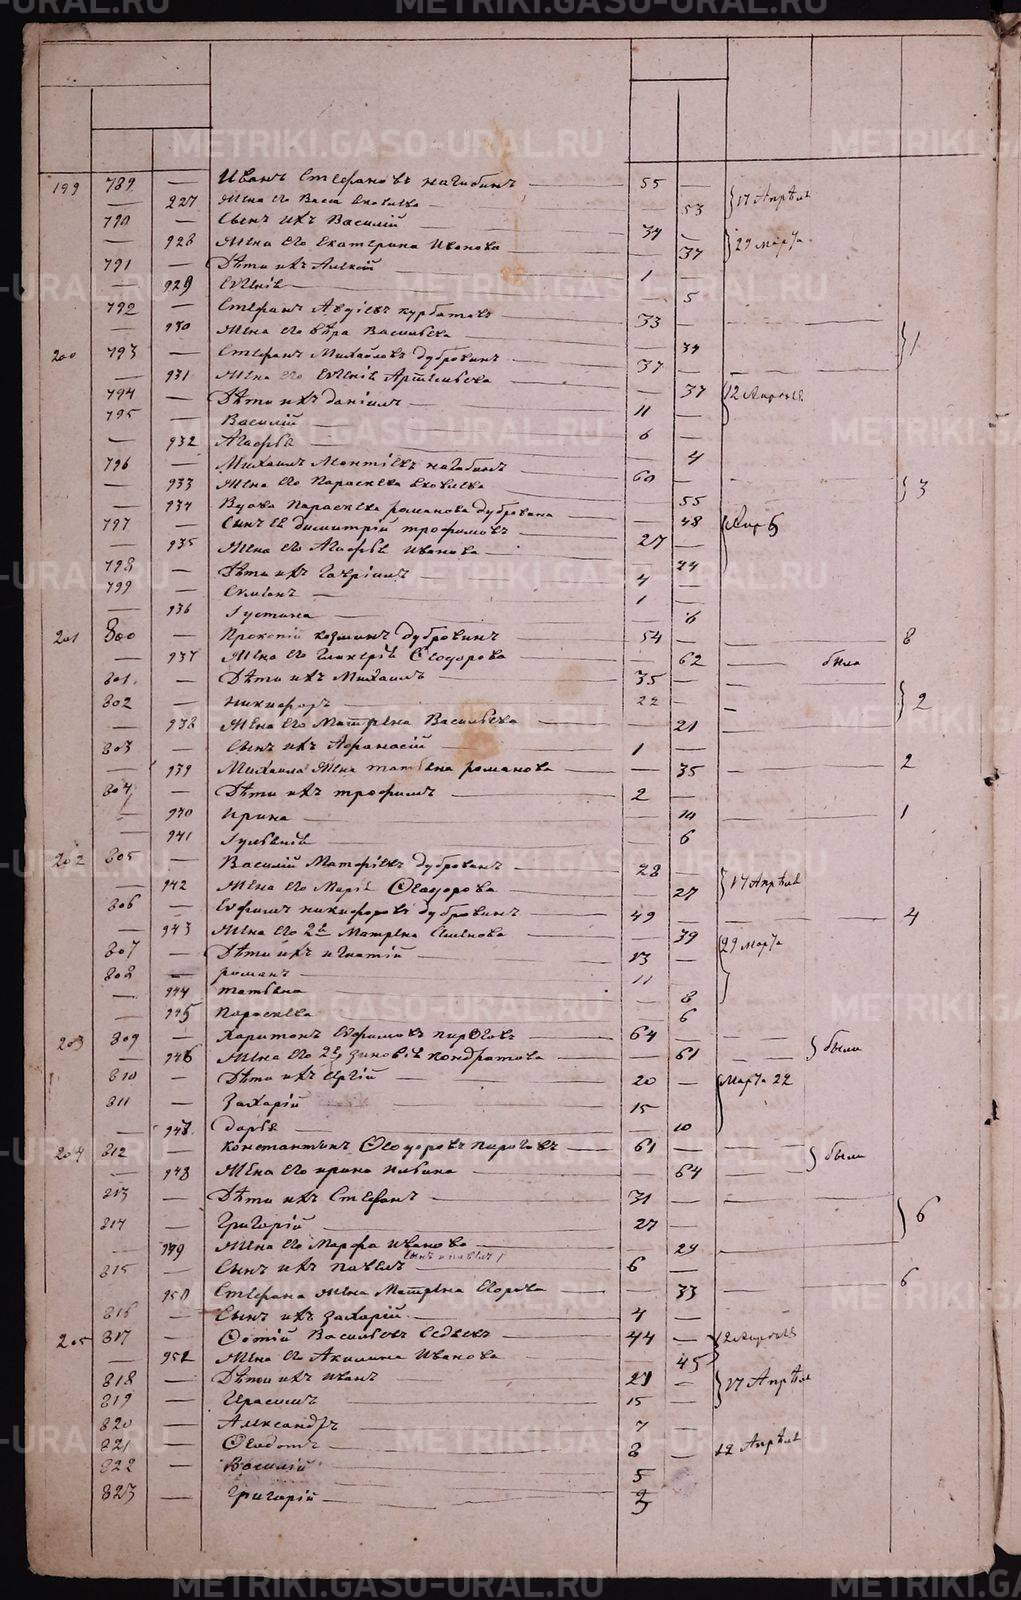 METRIKI.GASO-URAL.RU
199 789 — Иванъ Стефановъ Нагибинъ — 55 —
— 927 Жена его Васса Яковлева — 53 } 17 Апрѣля
790 — Сынъ ихъ Василій — 34 —
— 928 Жена его Екатерина Иванова — 37 } 29 Марта
791 — Дѣти ихъ Алексій — 1 —
— 929 Евгенія — 5
792 — Стефанъ Авдіевъ Курбатовъ — 33 —
— 930 Жена его Вѣра Васильева — 34 } 1
200 793 — Стефанъ Михайловъ Дубровинъ — 37 —
— 931 Жена его Евгенія Артемьева — 37 } 12 Апреля
794 — Дѣти ихъ Даніилъ — 11
795 — Василій — 6 —
— 932 Агафья — 4
796 — Михаилъ Леонтіевъ Нагибинъ — 60 —
— 933 Жена его Параскева Яковлева — 55 } 3
— 934 Вдова Параскева Романова Дубровина — 48
797 — Сынъ ея Димитрій Трофимовъ — 27 —
— 935 Жена его Агафья Иванова — 24
798 — Дѣти ихъ Гавріилъ — 4 —
799 — Симеонъ — 1 —
— 936 Іустина — 6
201 800 — Прокопій Козминъ Дубровинъ — 54 — 8
— 937 Жена его Гликерія Ѳеодорова — 62 — была
801 — Дѣти ихъ Михаилъ — 35 —
802 — Никифоръ — 22 — } 2
— 938 Жена его Матрена Васильева — 21 —
803 — Сынъ ихъ Афанасій — 1 —
— 939 Михаила жена Татьяна Романова — 35 — 2
804 — Дѣти ихъ Трофимъ — 2 —
— 940 Ирина — 14 — 1
— 941 Іульянія — 6
202 805 — Василій Матфіевъ Дубровинъ — 28 —
— 942 Жена его Марія Ѳеодорова — 27 } 17 Апрѣля
806 — Ефимъ Никифоровъ Дубровинъ — 49 — 4
— 943 Жена его 2я Матрена — 39 } 29 Марта
807 — Дѣти ихъ Игнатій — 13 —
808 — Романъ — 11
— 944 Татьяна — 8
— 945 Параскева — 6
203 809 — Харитонъ Ефимовъ Пироговъ — 64 —
— 946 Жена его 2я Зиновія Кондратова — 61 — } были
810 — Дѣти ихъ Сергій — 20 — Марта 22
811 — Захарій — 15
— 947 Дарья — 10
204 812 — Константинъ Ѳеодоровъ Пироговъ — 61 —
— 948 Жена его Ирина — 64 — } были
813 — Дѣти ихъ Стефанъ — 31 —
814 — Григорій — 27 — } 6
— 949 Жена его Марфа Иванова — 29 —
815 — Сынъ ихъ Павелъ — 6 —
— 950 Стефана жена Матрена Егорова — 33 — 6
816 — Сынъ ихъ Захарій — 4 —
205 817 — Фотій Васильевъ — 44 — } 12 Апреля
— 951 Жена его Акилина Иванова — 45
818 — Дѣти ихъ Иванъ — 21 — } 17 Апрѣля
819 — Герасимъ — 15 —
820 — Александръ — 7
821 — Ѳеодотъ — 8 — 12 Апрѣля
822 — Василій — 5
823 — Григорій — 3